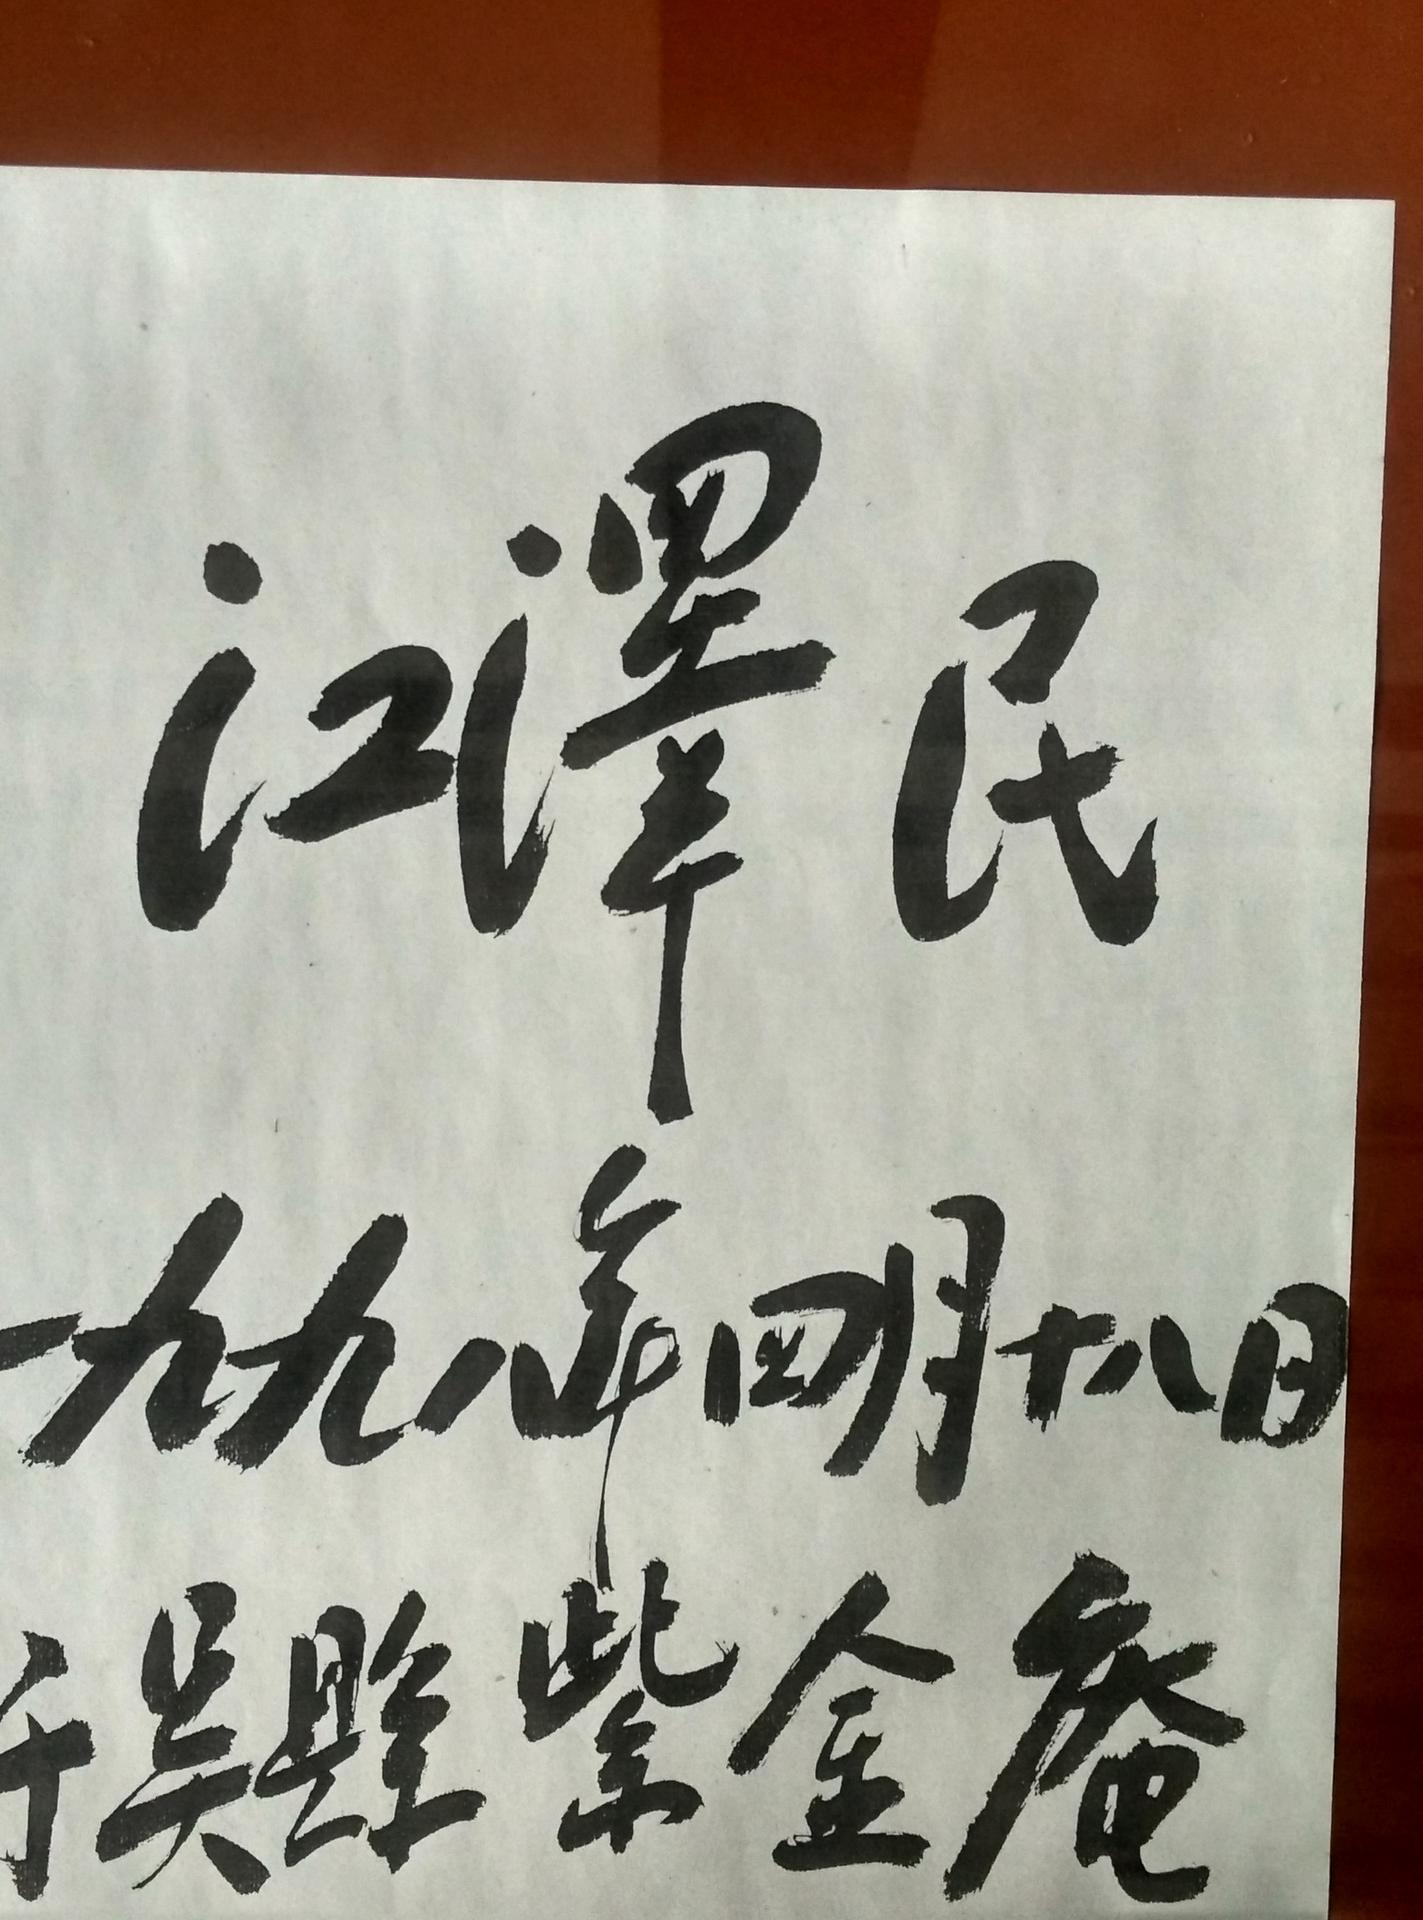 江澤民
一九九八年四月十八日
于吴縣紫金庵